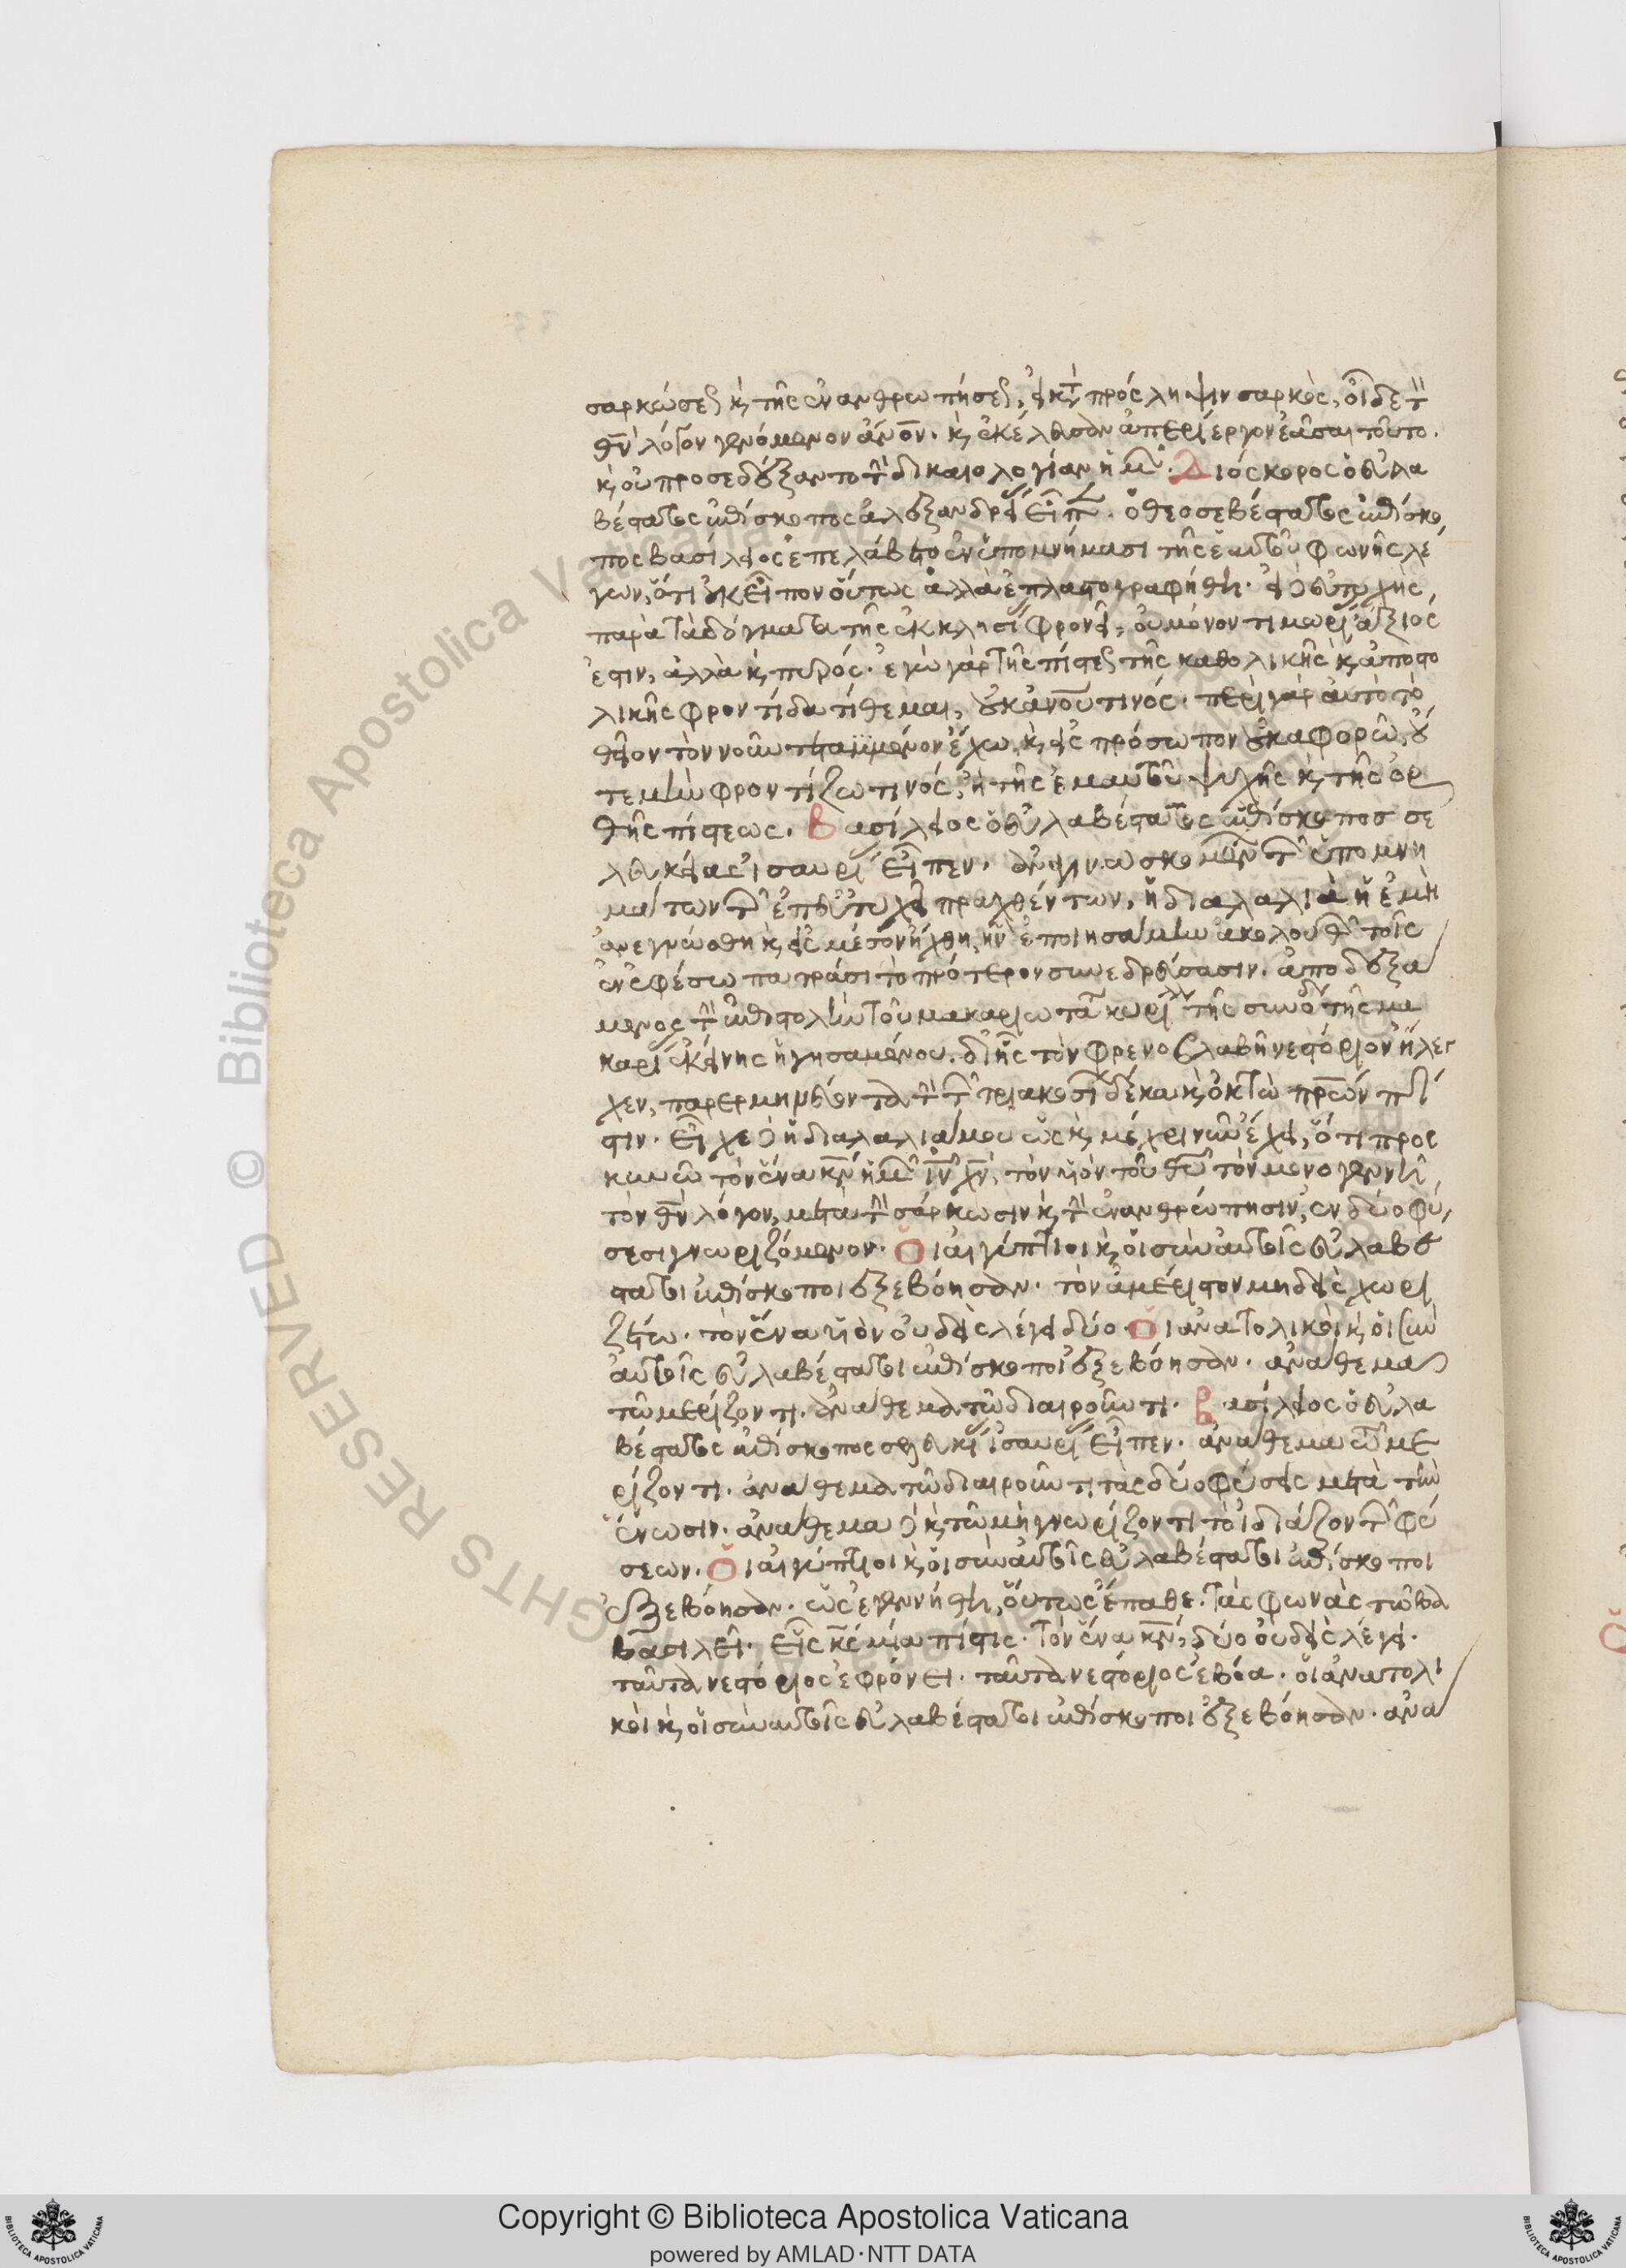 σαρκώσεως κ τῆς ἐνανθρωπήσεως, εἰ κτ πρόσληψιν σαρκὸς, οἶδε τ
θν λόγον γενόμενον ἄνον. κ ἐκέλευσαν ἀπεριέργον ἐᾶσαι τοῦτο.
κ οὐ προσεδέξαντο τὴν δικαιολογίαν ἡμῶν. Διόσκορος ὁ εὐλα
βέστατος ἐπίσκοπος ἀλεξανδρείας εἶπεν. ὁ θεοσεβέστατος ἐπίσκο
πος βασίλειος ἐπελάβετο ἐν ὑπομνήμασι τῆς ἑαυτοῦ φωνῆς λέ
γων, ὅτι οὐκ εἶπον οὕτως ἀλλὰ ἐπλαστογραφήθη. εἰ δὲ εὐτυχὴς
παρὰ τὰ δόγματα τῆς ἐκκλησίας φρονεῖ, οὐ μόνον τιμωρίας ἄξιός
ἐστιν, ἀλλὰ κ πυρός. ἐγὼ γὰρ τῆς πίστεως τῆς καθολικῆς κ ἀποστο
λικῆς φροντίδα τίθεμαι, οὐκ ἀνου τινός. περὶ γὰρ αὐτὸ τὸ
θεῖον τὸν νοῦν τεταμμένον ἔχω, κ εἰς πρόσωπον οὐκ ἀφορῶ, οὔ
τε μὴν φροντίζω τινός, ἢ τῆς ἐμαυτοῦ ψυχῆς κ τῆς ὀρ
θῆς πίστεως. Βασίλειος ὁ εὐλαβέστατος ἐπίσκοπος σε
λευκείας ἰσαυρίας εἶπεν. ἀναγινωσκομένων τῶν ὑπομνη
μάτων τῶν ἐπὶ εὐτυχεῖ πραχθέντων, ἡ διαλαλιὰ ἡ ἐμὴ
ἀνεγνώσθη κ εἰς μέσον ἤχθη, ἣν ἐποιησάμην ἀκολουθῶν τοῖς
ἐν ἐφέσω πατράσι τὸ πρότερον συνεδρεύσασιν. ἀποδεξά
μενος τὴν ἐπιστολὴν τοῦ μακαριωτάτου κυρίλλου τῆς συνόδου τῆς μα
καρίας ἐκείνης ἡγησαμένου. δι ἧς τὸν φρενοβλαβῆ νεστόριον ἤλεγ
χεν, παρερμηνεύοντα τὴν τῶν τριακοσίων δέκα κ ὀκτὼ πρων πί
στιν. εἶχε δὲ ἡ διαλαλιά μου ὡς κ μέχρι νῦν ἔχει, ὅτι προς
κυνῶ τὸν ἕνα κν ἡμῶν ιν χν, τὸν υἱὸν τοῦ θυ τὸν μονογενῆ,
τὸν θν λόγον, μετὰ τὴν σάρκωσιν κ τὴν ἐνανθρώπησιν, ἐν δύο φύ
σεσι γνωριζόμενον. Οἱ αἰγύπτιοι κ οἱ σὺν αὐτοῖς εὐλαβέ
στατοι ἐπίσκοποι ἐξεβόησαν. τὸν ἀμέριστον μηδεὶς χωρι
ζέτω. τὸν ἕνα υἱὸν οὐδεὶς λέγει δύο. Οἱ ἀνατολικοὶ κ οἱ σὺν
αὐτοῖς εὐλαβέστατοι ἐπίσκοποι ἐξεβόησαν. ἀνάθεμα
τῶ μερίζοντι. ἀνάθεμα τῶ διαιροῦντι. Βασίλειος ὁ εὐλα
βέστατος ἐπίσκοπος σελευκίας ἰσαυρίας εἶπεν. ἀνάθεμα τῶ με
ρίζοντι. ἀνάθεμα τῶ διαιροῦντι τὰς δύο φύσεις μετὰ τὴν
ἕνωσιν. ἀνάθεμα δὲ κ τῶ μὴ γνωρίζοντι τὸ ἰδιάζον τῶν φύ
σεων. Οἱ αἰγύπτιοι κ οἱ σὺν αὐτοῖς εὐλαβέστατοι ἐπίσκοποι
ἐξεβόησαν. ὡς ἐγεννήθη, οὕτως ἔπαθε. τὰς φωνὰς τῶ βα
βασιλεῖ. εἷς κς μία πίστις. τὸν ἕνα κν, δύο οὐδεὶς λέγει.
ταῦτα νεστόριος ἐφρόνει. ταῦτα νεστόριος ἐβόα. οἱ ἀνατολι
κοὶ κ οἱ σὺν αὐτοῖς εὐλαβέστατοι ἐπίσκοποι ἐξεβόησαν. ἀνά
© Biblioteca Apostolica Vaticana ALL RIGHTS RESERVED
Copyright © Biblioteca Apostolica Vaticana
powered by AMLAD·NTT DATA
BIBLIOTECA APOSTOLICA VATICANA
BIBLIOTECA APOSTOLICA VATICANA